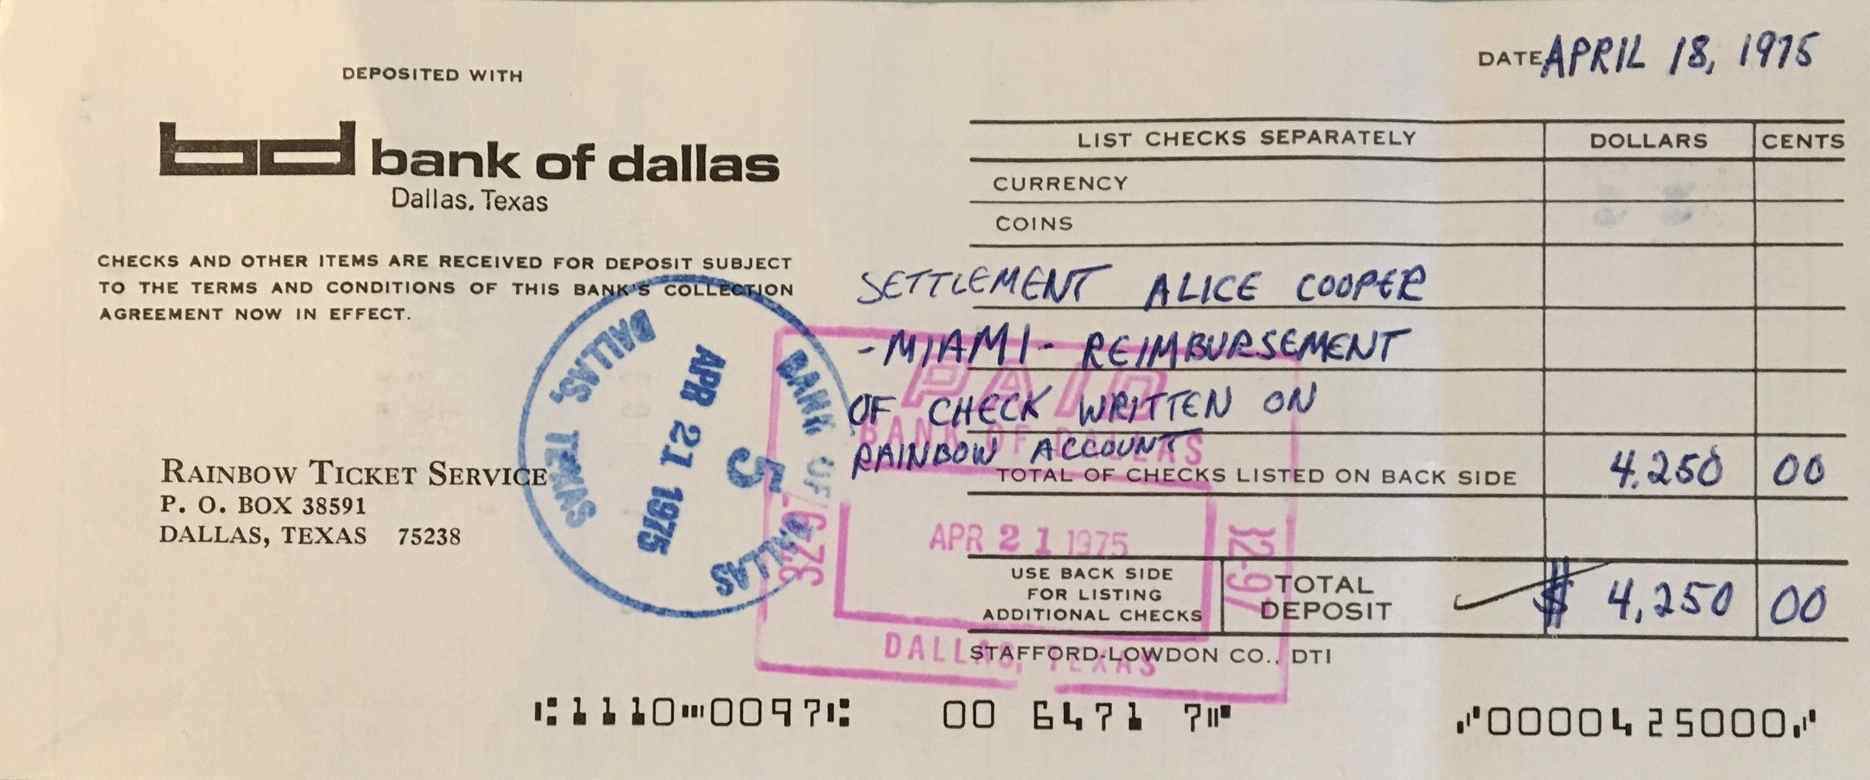 DATE APRIL 18, 1975
DEPOSITED WITH
bd bank of dallas
Dallas, Texas
CHECKS AND OTHER ITEMS ARE RECEIVED FOR DEPOSIT SUBJECT
TO THE TERMS AND CONDITIONS OF THIS BANK'S COLLECTION
AGREEMENT NOW IN EFFECT.
RAINBOW TICKET SERVICE
P. O. BOX 38591
DALLAS, TEXAS 75238
BANK OF DALLAS
APR 21 1975
5
DALLAS, TEXAS
LIST CHECKS SEPARATELY DOLLARS CENTS
CURRENCY
COINS
SETTLEMENT ALICE COOPER
-MIAMI- REIMBURSEMENT
OF CHECK WRITTEN ON
RAINBOW ACCOUNT
TOTAL OF CHECKS LISTED ON BACK SIDE 4,250 00
PAID
BANK OF DALLAS
32-97
APR 21 1975
32-97
DALLAS, TEXAS
USE BACK SIDE
FOR LISTING
ADDITIONAL CHECKS
TOTAL
DEPOSIT
$ 4,250 00
STAFFORD-LOWDON CO., DTI
⑆1110⑉0097⑆ 00 6471 7⑈ ⑇0000425000⑇